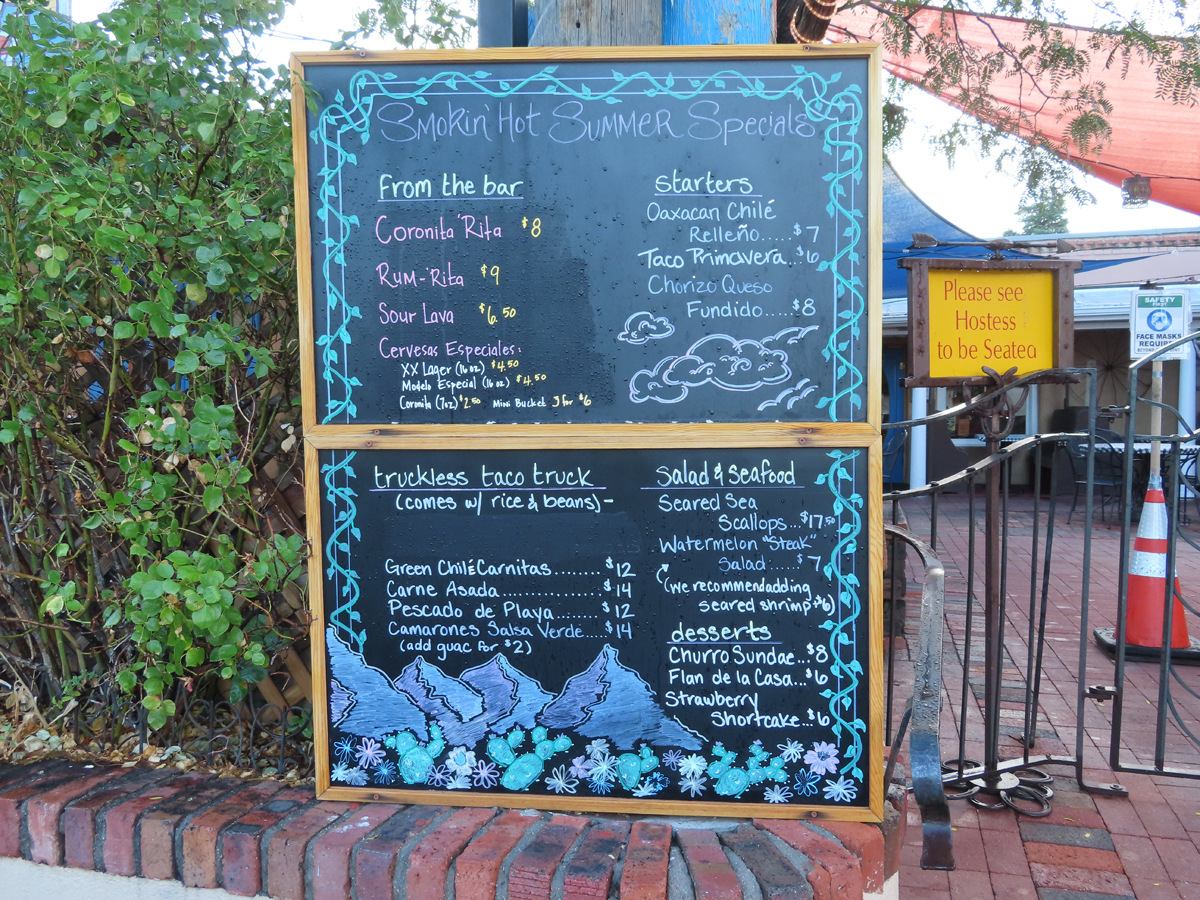 Smokin' Hot Summer Specials
From the bar
Coronita 'Rita $8
Rum-'Rita $9
Sour Lava $6.50
Cervesas Especiales:
XX Lager (16 oz.) $4.50
Modelo Especial (16 oz) $4.50
Coronita (7oz) $2.50 Mini Bucket 3 for $6
starters
Oaxacan Chilé
Relleño.....$7
Taco Primavera..$6
Chorizo Queso
Fundido.....$8
truckless taco truck
(comes w/ rice & beans)-
Green Chilé Carnitas........$12
Carne Asada...............$14
Pescado de Playa.......$12
Camarones Salsa Verde....$14
(add guac for $2)
Salad & Seafood
Seared Sea
Scallops...$17.50
Watermelon "Steak"
Salad.....$7
(we recommend adding
seared shrimp +$6)
desserts
Churro Sundae...$8
Flan de la Casa...$6
Strawberry
Shortcake..$6
Please see
Hostess
to be Seated
SAFETY
FIRST
FACE MASKS
REQUIRED